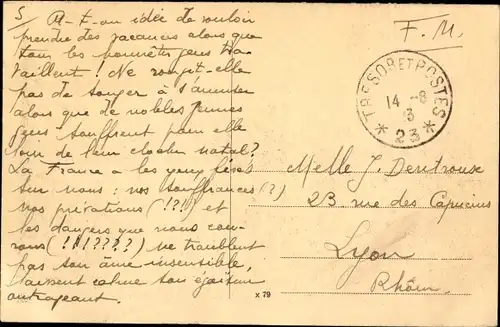 5 A-t-on idée de vouloir
prendre des vacances alors que
tous les honnêtes gens tra-
vaillent! Ne rougit-elle
pas de songer à s'amuser
alors que de nobles jeunes
gens souffrent pour elle
loin de leur clocher natal?
La France a les yeux fixés
sur nous: nos souffrances (?)
nos privations (!?!) et
les dangers que nous cou-
rons (!!!????) ne troublent
pas son âme insensible,
laissent calme son égoïsme
outrageant.
F.M.
TRESOR ET POSTES
14 -8
* 23 *
Melle J. Dentrouse
23 rue des Capucins
Lyon
Rhône
x 79